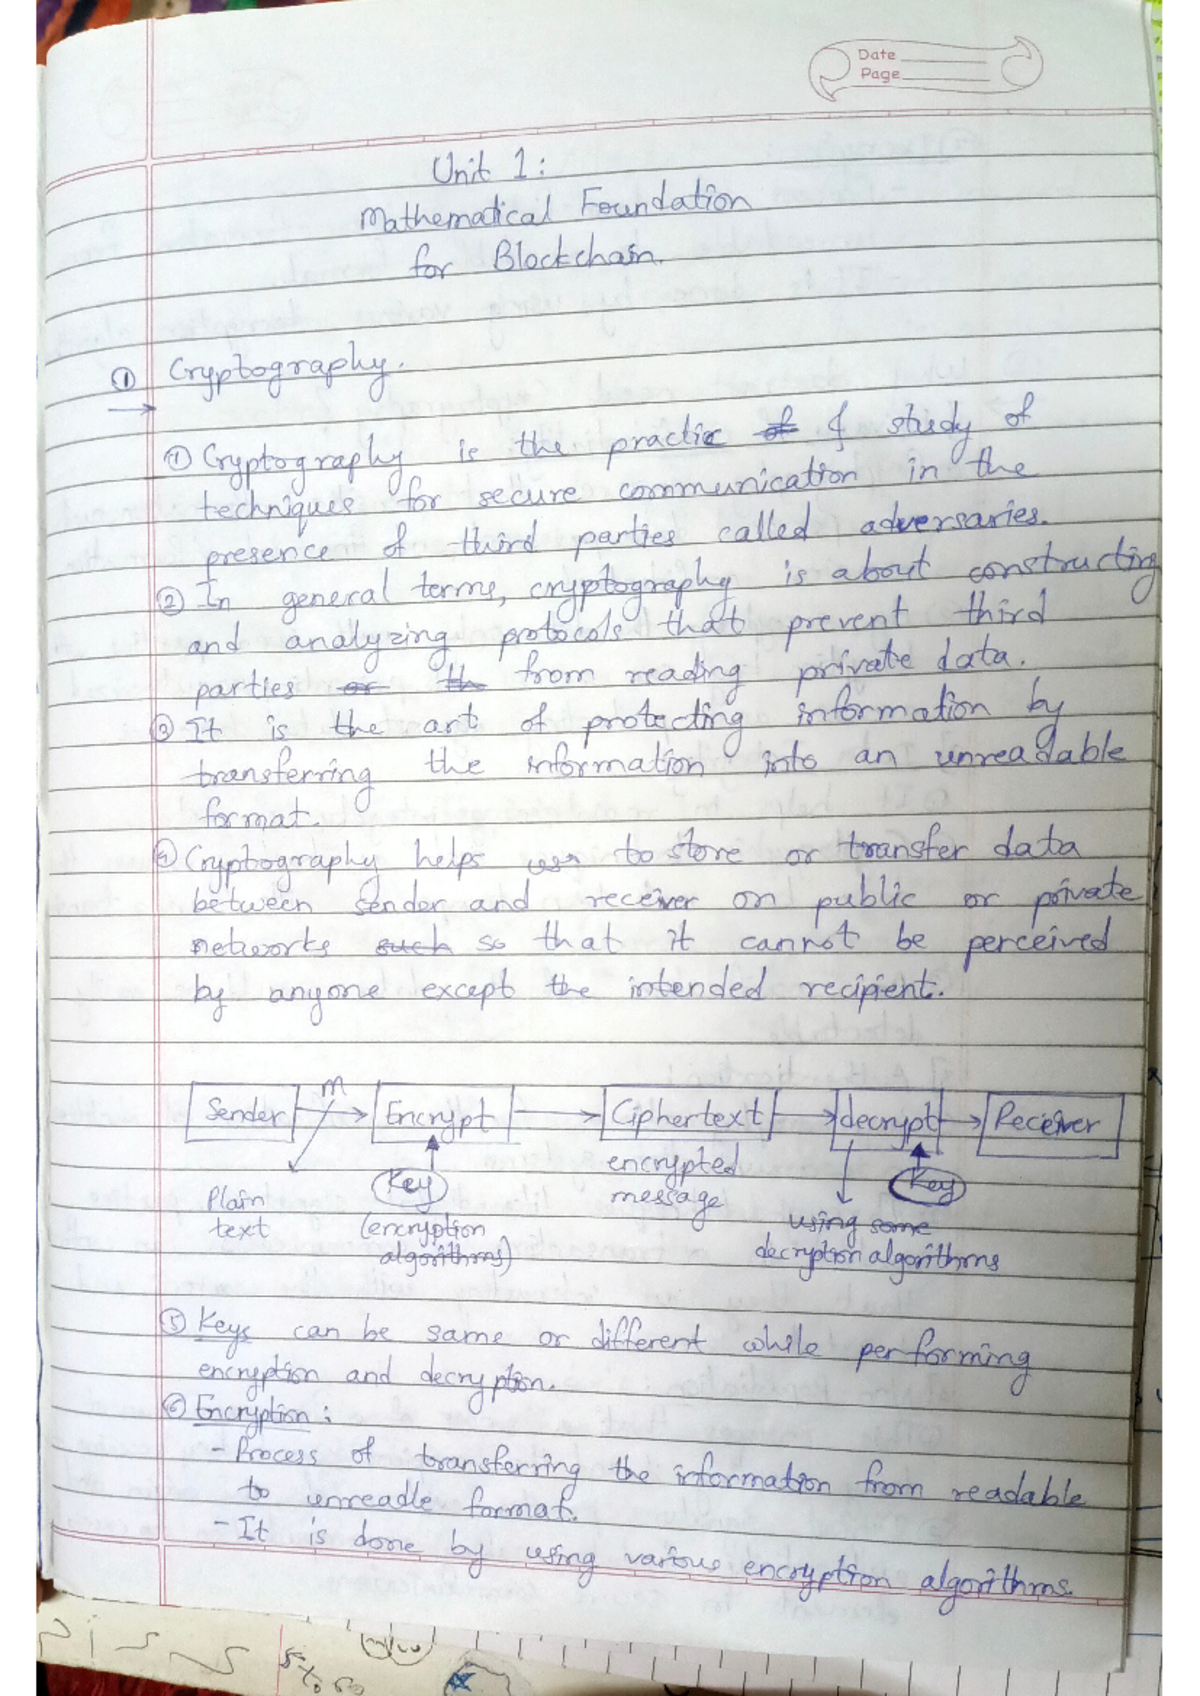 Date
Page
Unit 1:
Mathematical Foundation
for Blockchain.
① Cryptography.
① Cryptography is the practic of & study of
techniques for secure communication in the
presence of third parties called adversaries.
② In general terms, cryptography is about constructing
and analyzing protocols that prevent third
parties or th from reading private data.
③ It is the art of protecting information by
transferring the information into an unreadable
format.
④ Cryptography helps to store or transfer data
between sender and receiver on public or private
networks such so that it cannot be perceived
by anyone except the intended recipient.
Sender m Encrypt Ciphertext decrypt Receiver
Plain text
Key
(encryption algorithms)
encrypted message
Key
using some decryption algorithms
⑤ Keys can be same or different while performing
encryption and decryption.
⑥ Encryption:
- Process of transferring the information from readable
to unreadle format.
- It is done by using various encryption algorithms.